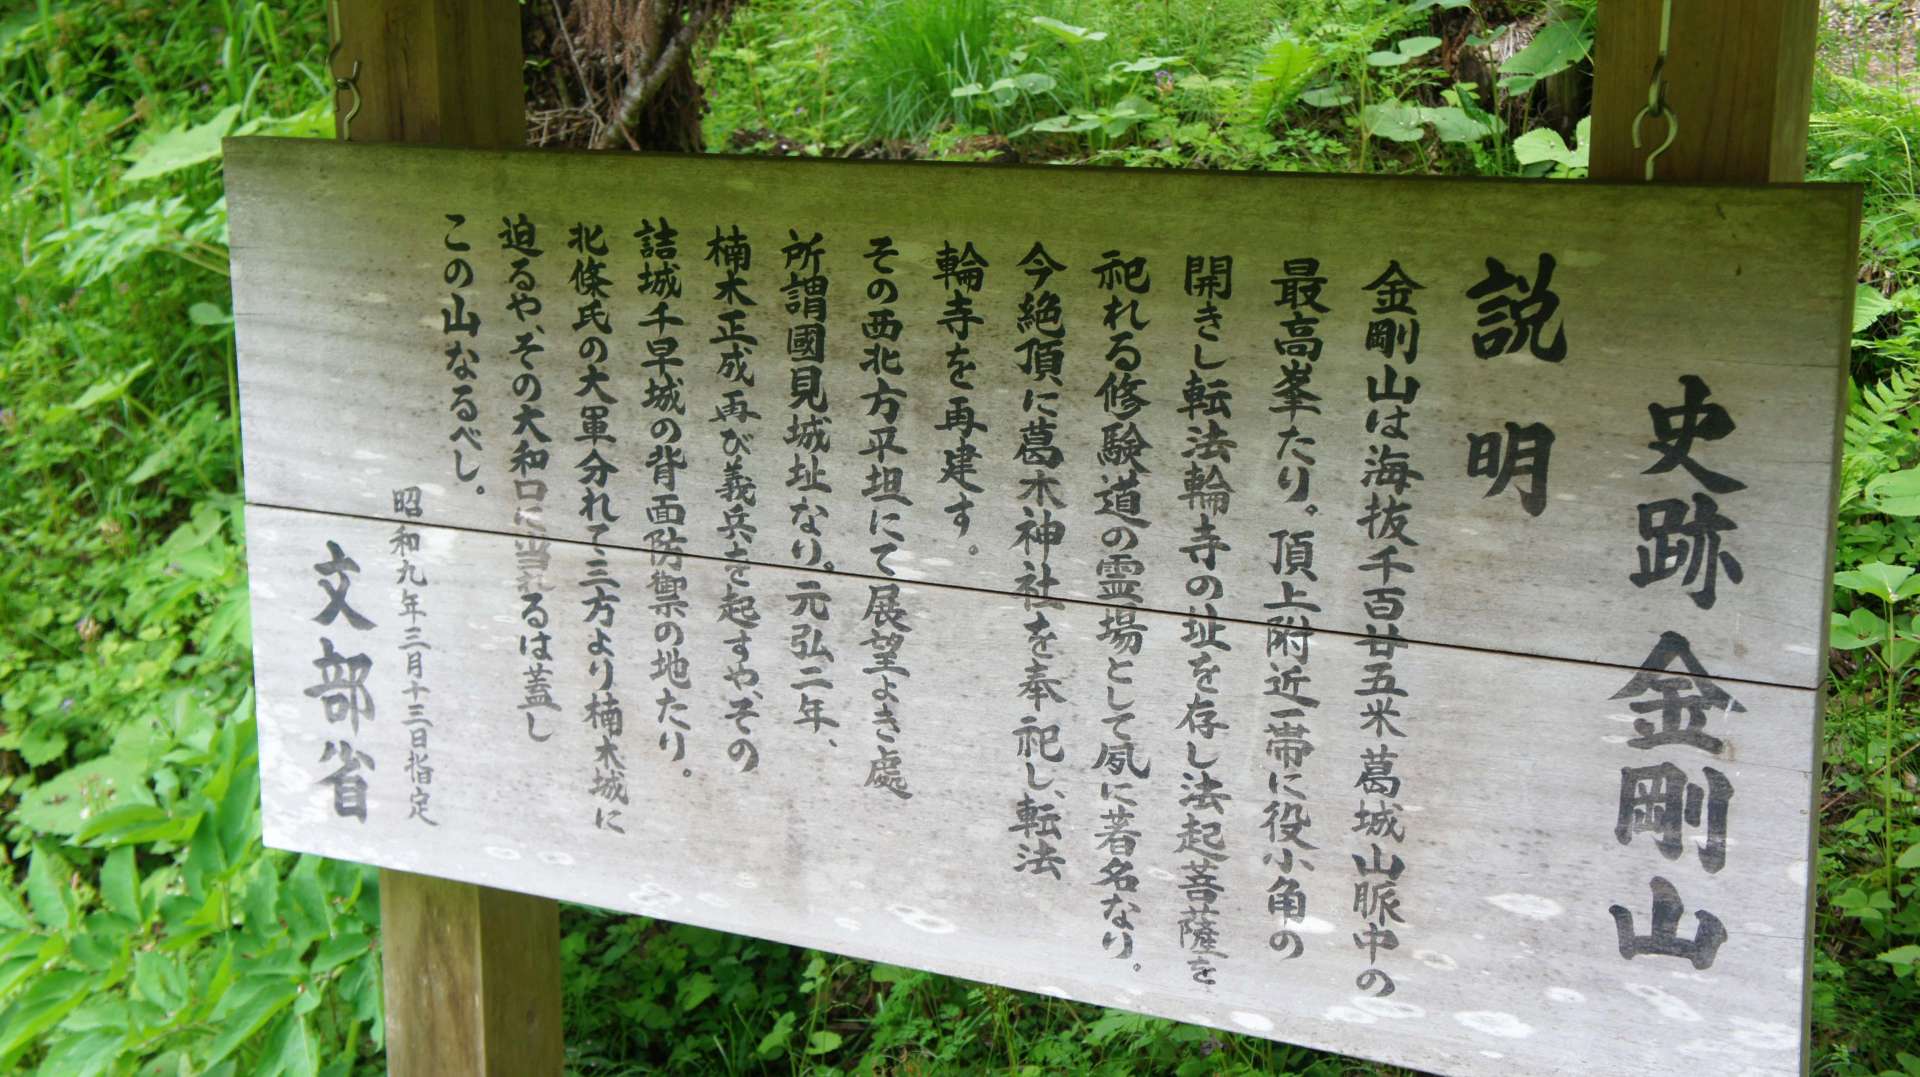 史跡 金剛山
説明
金剛山は海抜千百廿五米葛城山脈中の
最高峯たり。頂上附近一帯に役小角の
開きし転法輪寺の址を存し法起菩薩を
祀れる修験道の霊場として夙に著名なり。
今絶頂に葛木神社を奉祀し、転法
輪寺を再建す。
その西北方平坦にて展望よき處
所謂國見城址なり。元弘二年、
楠木正成再び義兵を起すや、その
詰城千早城の背面防禦の地たり。
北條氏の大軍分れて三方より楠木城に
迫るや、その大和口に当れるは蓋し
この山なるべし。
昭和九年三月十三日指定
文部省